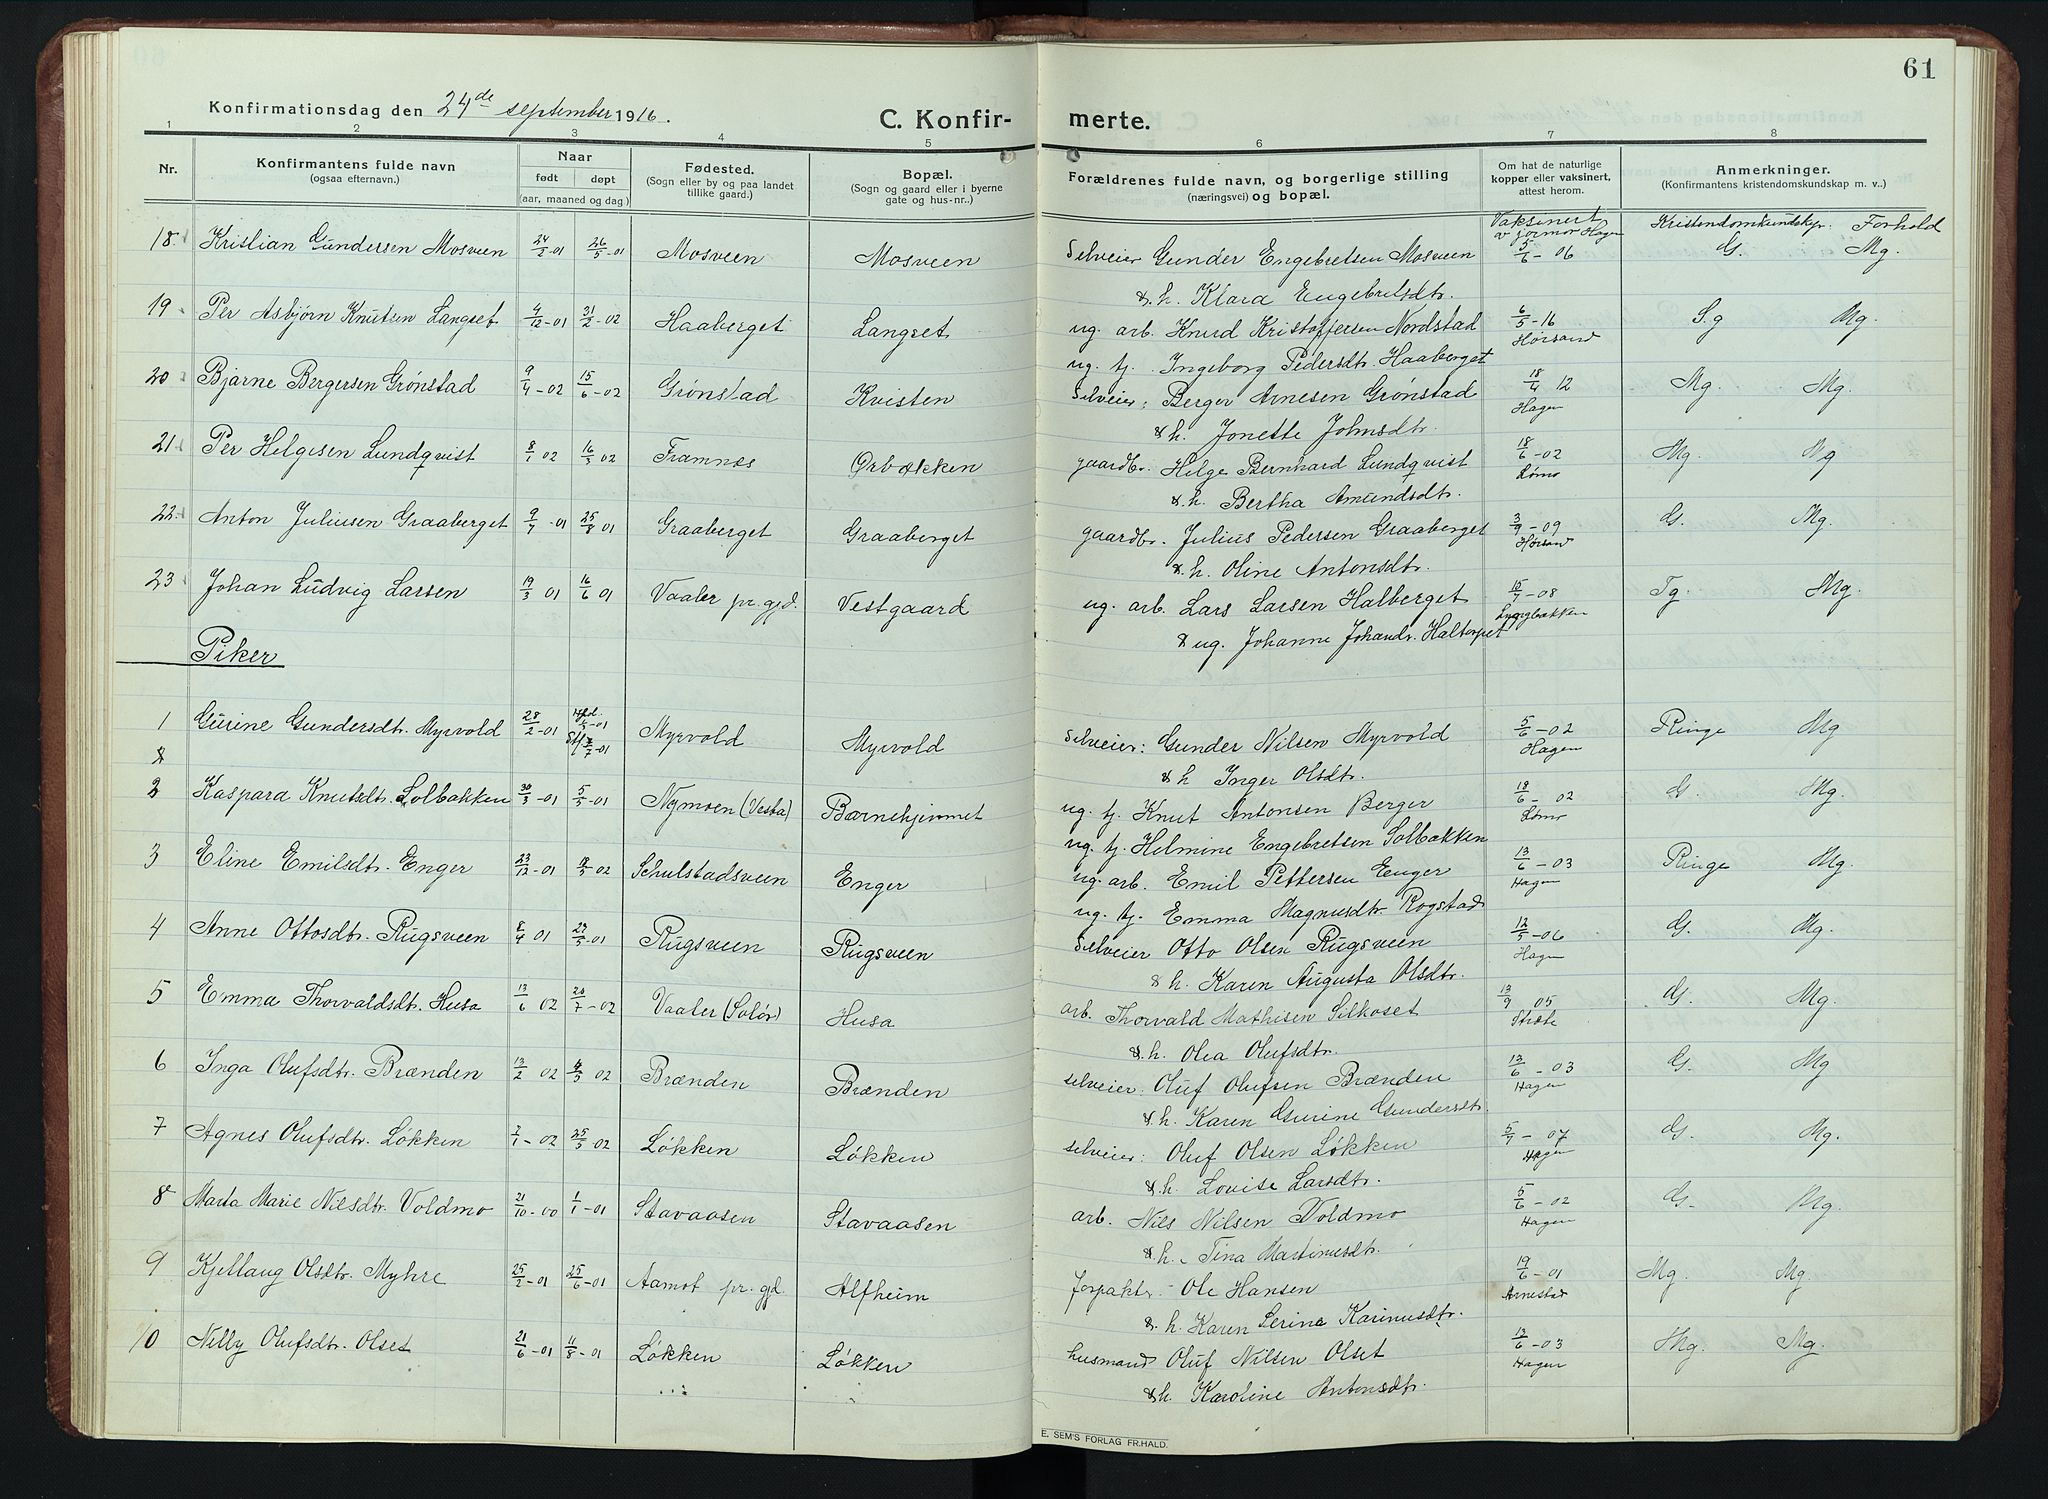 61
Konfirmationsdag den 24de september 1916.
C. Konfirmerte.
1 2 3 4 5 6 7 8
Nr.
Konfirmantens fulde navn
(ogsaa efternavn.)
Naar
født døpt
(aar, maaned og dag)
Fødested.
(Sogn eller by og paa landet
tillike gaard.)
Bopæl.
(Sogn og gaard eller i byerne
gate og hus-nr..)
Forældrenes fulde navn, og borgerlige stilling
(næringsvei) og bopæl.
Om hat de naturlige
kopper eller vaksinert,
attest herom.
Anmerkninger.
(Konfirmantens kristendomskundskap m. v..)
Vaksinert
av jormor Hagen
Kristendomkundskp. Forhold
18. Kristian Gundersen Mosveen 24/2-01 26/5-01 Mosveen Mosveen Selveier Gunder Engebretsen Mosveen 5/6-06 G. Mg.
& h. Klara Engebretsdtr.
19 Per Asbjørn Knutsen Langset 4/12-01 31/2-02 Haaberget Langset ug. arb. Knud Kristoffersen Nordstad 6/5-16 S.g Mg.
Hørsand
ug. tj. Ingeborg Pedersdtr. Haaberget
20 Bjarne Bergersen Grønstad 9/4-02 15/6-02 Grønstad Kvisten Selveier: Berger Arnesen Grønstad 18/4 12 Mg Mg.
Hagen
& h. Jonette Johnsdtr.
21 Per Helgesen Lundqvist 8/1 02 16/3 02 Framnæs Ørbækken gaardbr. Helge Bernhard Lundqvist 18/6-02 Mg. Mg
Lømo
& h. Bertha Amundsdtr.
22. Anton Juliusen Graaberget 9/7-01 25/8 01 Graaberget Graaberget gaardbr. Julius Pedersen Graaberget 3/9-09 G. Mg.
Hørsand
& h. Oline Antonsdtr.
23 Johan Ludvig Larsen 19/3 01 16/6 01 Vaaler pr. gjd. Vestgaard ug. arb. Lars Larsen Halberget 15/7-08 Tg. Mg.
Lyngbakken
& ug. Johanne Johandr. Haltorpet
Piker
1 Gurine Gundersdtr. Myrvold 28/2-01 Myrvold Myrvold Selveier: Gunder Nilsen Myrvold 5/6-02 Ringe Mg
Hagen
& h Inger Olsdtr.
2 Kaspara Knutsdtr. Solbakken 30/3-01 5/5-01 Nymoen (Vesta) Barnehjemmet ug. tj. Knut Antonsen Berger 18/6-02 G. Mg.
Lømo
ug. tj. Helmine Engebretsen Solbakken
3 Eline Emilsdtr. Enger 23/12-01 18/5 02 Schulstadsveen Enger ug. arb. Emil Pettersen Enger 13/6-03 Ringe Mg.
Hagen
ug. tj. Emma Magnusdtr Rogstad
4 Anne Ottosdtr. Rugsveen 8/4 01 27/5-01 Rugsveen Rugsveen Selveier Otto Olsen Rugsveen 12/5-06 G. Mg.
Hagen
& h. Karen Augusta Olsdtr.
5 Emma Thorvaldsdt. Husa 13/6 02 20/7-02 Vaaler (Solør) Husa arb. Thorvald Mathisen Silkoset 13/9 05 G. Mg.
Stræte
& h. Olea Olufsdtr.
6 Inga Olufsdtr. Brænden 13/2 02 4/3 02 Brænden Brænden selveier: Oluf Olufsen Brænden 13/6-03 G. Mg
Hagen
& h. Karen Gurine Gundersdtr.
7 Agnes Olufsdtr. Løkken 2/1-02 25/5 02 Løkken Løkken selveier: Oluf Olsen Løkken 5/7-07 G. Mg.
Hagen
& h. Lovise Larsdtr.
8 Marta Marie Nilsdtr. Voldmo 21/10-00 1/1-01 Stavaasen Stavaasen arb. Nils Nilsen Voldmo 5/6-02 G. Mg.
Hagen
& h. Tina Martinusdtr.
9 Kjellaug Olsdtr. Myhre 25/2-01 25/6-01 Aamot pr. gjd. Alfheim forpakter Ole Hansen 19/6-01 Mg. Mg.
Arnestad
& h. Karen Serine Karinusdtr.
10 Nelly Olufsdtr. Olset 21/6-01 11/8-01 Løkken Løkken husmand Oluf Nilsen Olset 13/6-03 Mg. Mg.
Hagen
& h. Karoline Antonsdtr.
E. SEM'S FORLAG FR.HALD.